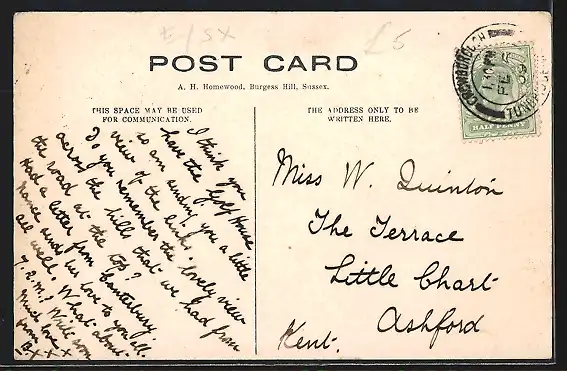 E/SX
£5
POST CARD
A. H. Homewood, Burgess Hill, Sussex.
THIS SPACE MAY BE USED
FOR COMMUNICATION.
THE ADDRESS ONLY TO BE
WRITTEN HERE.
I think you
have the Golf House
so am sending you a little
view of the links.
Do you remember the lovely view
across the hills that we had from
the road at the top?
Had a letter from Canterbury.
Nance sends her love to you all.
all well. What about
Write soon
Much love
from B. x x x
Miss W. Quinton
The Terrace
Little Chart
Ashford
Kent.
CROWBOROUGH
HALF PENNY